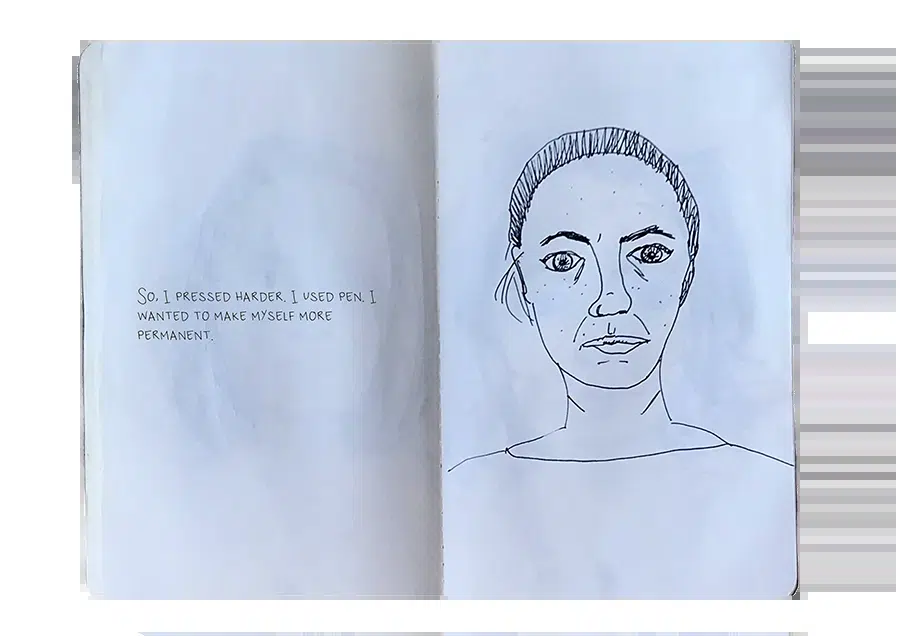 So, I PRESSED HARDER. I USED PEN. I
WANTED TO MAKE MYSELF MORE
PERMANENT.